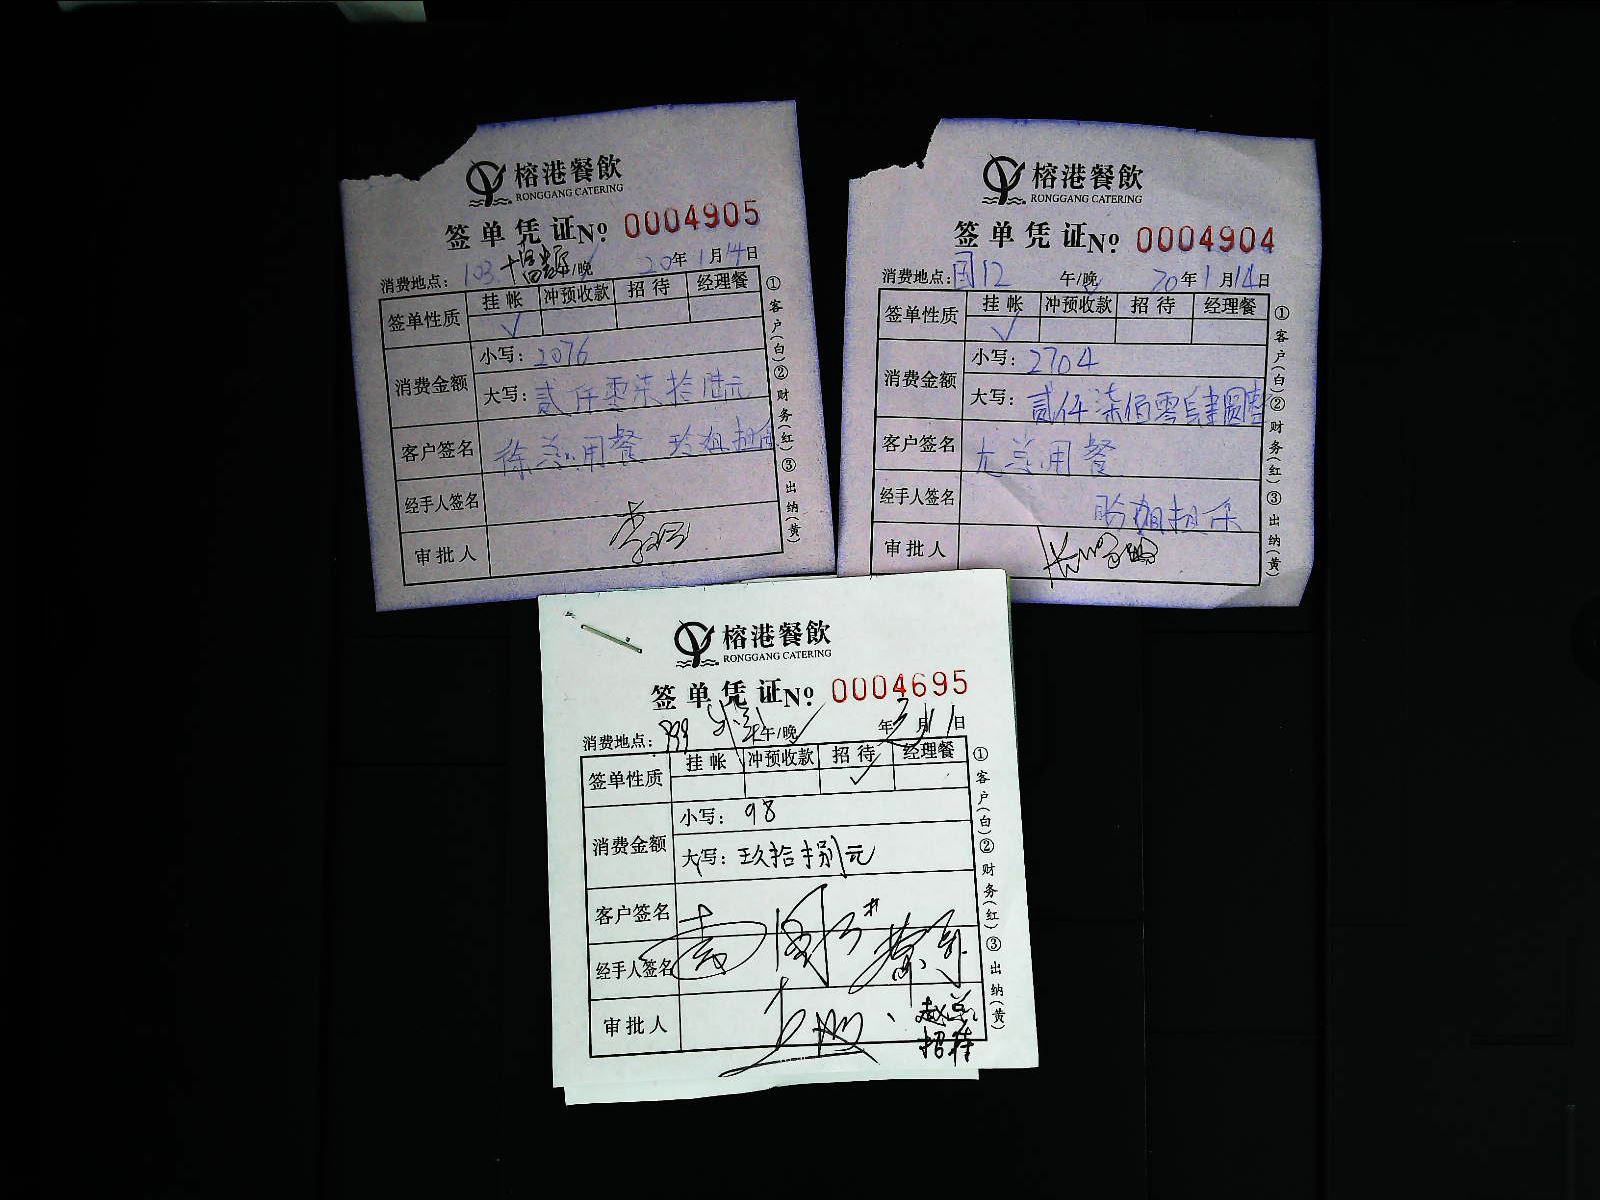 榕港餐飲
RONGGANG CATERING
签单凭证 No. 0004905
消费地点: 103 午/晚 20年1月14日
签单性质 挂帐 冲预收款 招待 经理餐
✓
消费金额 小写: 2076
大写: 贰仟零柒拾陆元
客户签名 徐总用餐 玲姐担保
经手人签名
审批人
①客户(白)②财务(红)③出纳(黄)
榕港餐飲
RONGGANG CATERING
签单凭证 No. 0004904
消费地点: 国12 午/晚 20年1月14日
签单性质 挂帐 冲预收款 招待 经理餐
✓
消费金额 小写: 2704
大写: 贰仟柒佰零肆圆整
客户签名 尤总用餐
经手人签名 玲姐担保
审批人
①客户(白)②财务(红)③出纳(黄)
榕港餐飲
RONGGANG CATERING
签单凭证 No. 0004695
消费地点: 999 午/晚 年 月 1日
签单性质 挂帐 冲预收款 招待 经理餐
✓
消费金额 小写: 98
大写: 玖拾捌元
客户签名
经手人签名
审批人 赵总
招待
①客户(白)②财务(红)③出纳(黄)